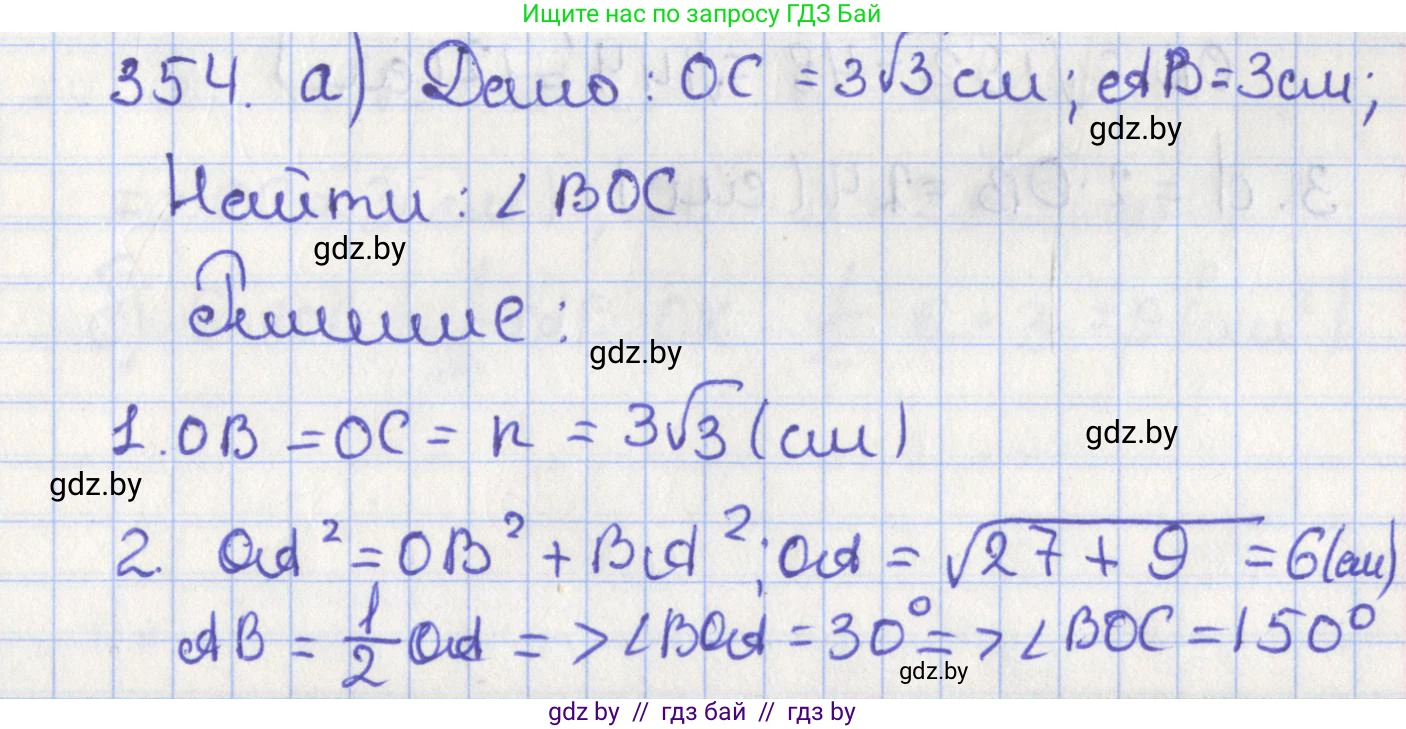 Ищите нас по запросу ГДЗ Бай
354. а) Дано: OC = 3√3 см; AB = 3см;
gdz.by
Найти: ∠ BOC
gdz.by
Решение:
gdz.by
1. OB = OC = R = 3√3 (см)
gdz.by
gdz.by
2. OA² = OB² + BA²; OA = √27 + 9 = 6(см)
AB = 1/2 OA => ∠BOA = 30° => ∠BOC = 150°
gdz.by
gdz by // гдз бай // гдз by